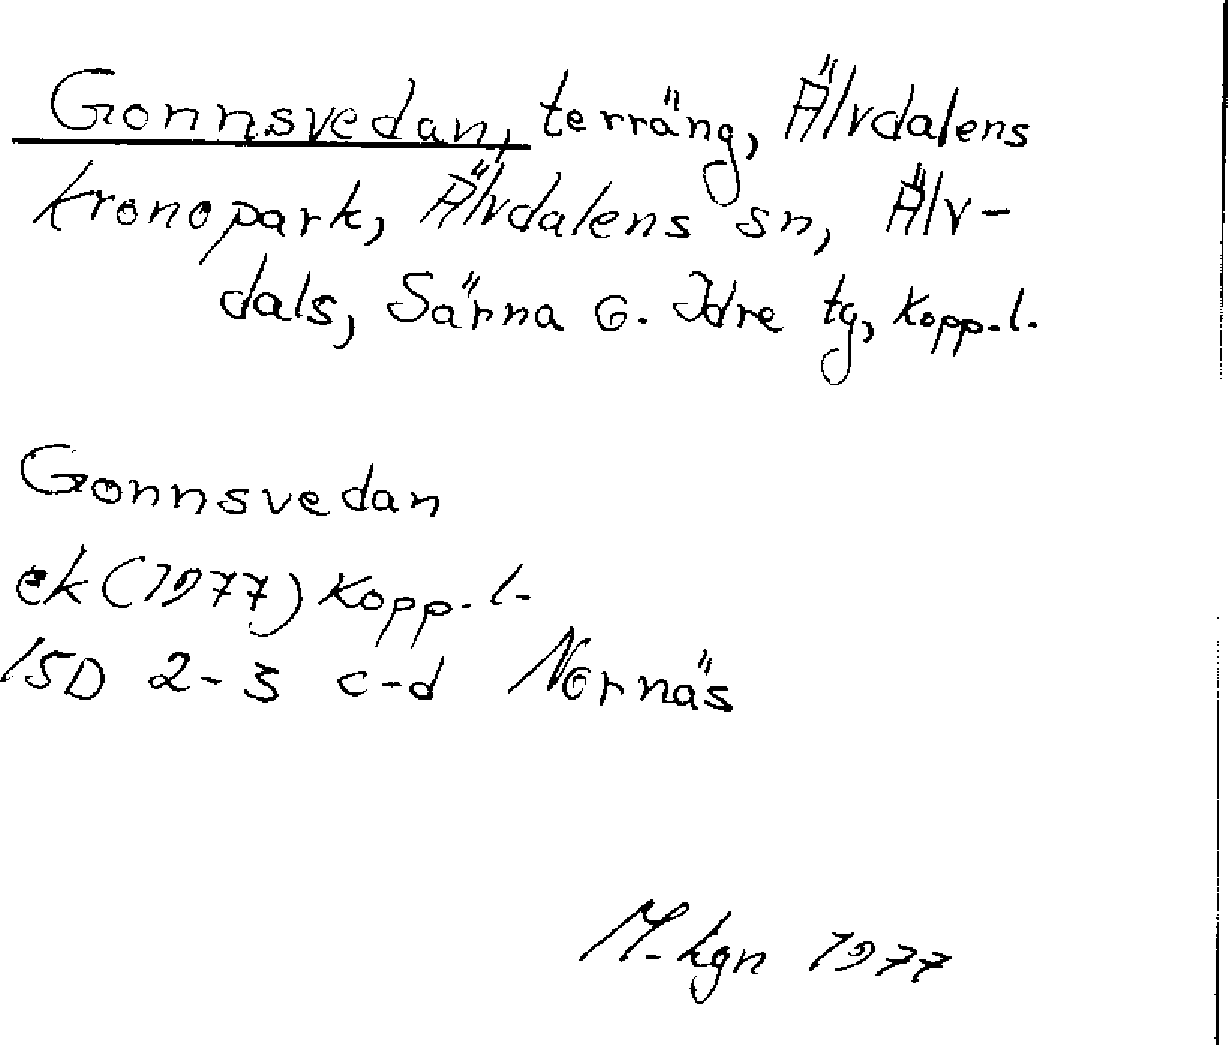 Gonnsvedan, terräng, Älvdalens
kronopark, Älvdalens sn, Älv-
dals, Särna o. Idre tg, Kopp.l.
Gonnsvedan
ek (1977) Kopp.l.
15D 2-3 c-d Nornäs
M-kgn 1977